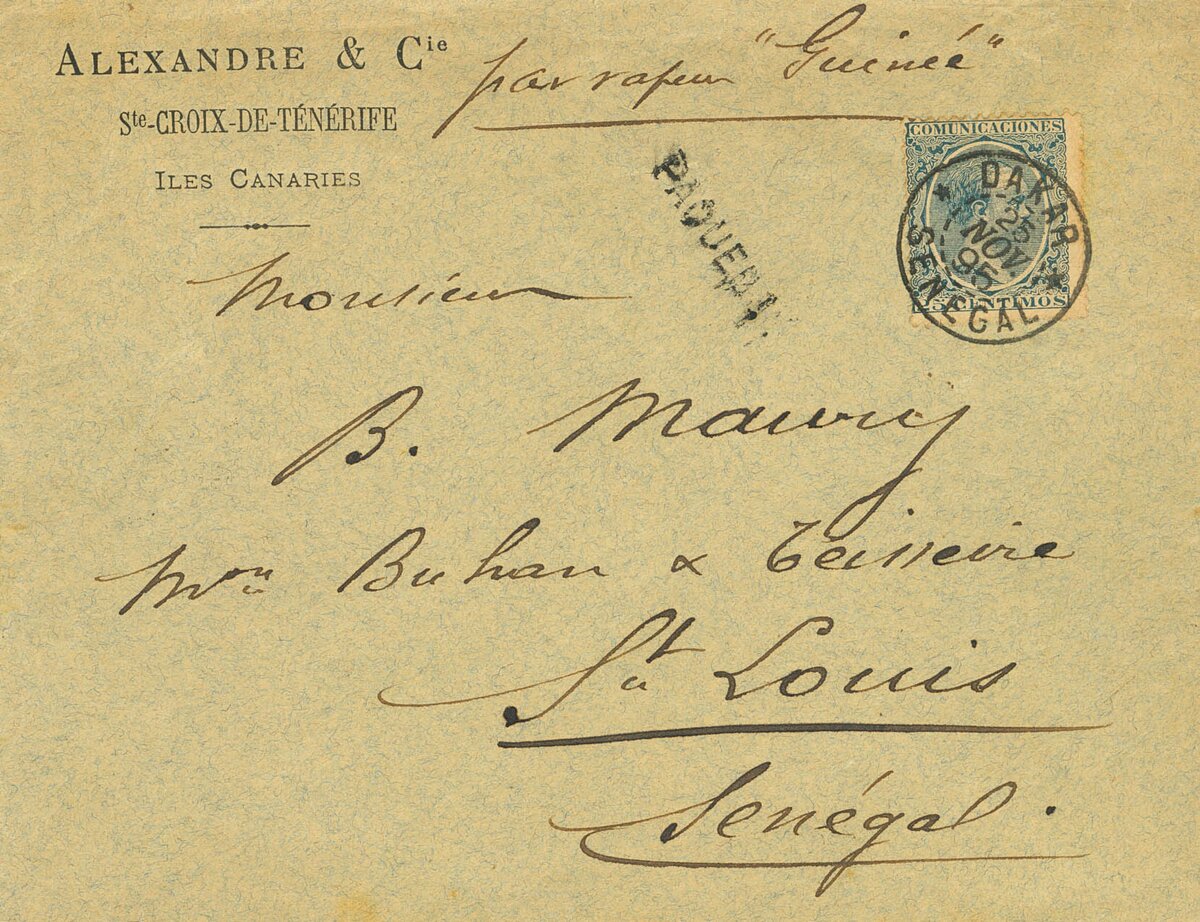 ALEXANDRE & Cie
Ste-CROIX-DE-TÉNÉRIFE
ILES CANARIES
par vapeur "Guinée"
PAQUEBOT
COMUNICACIONES
25 CENTIMOS
DAKAR
25
NOV.
95
SENEGAL
Monsieur
B. Maury
Mon Buhan & Teisseire
St Louis
Sénégal.